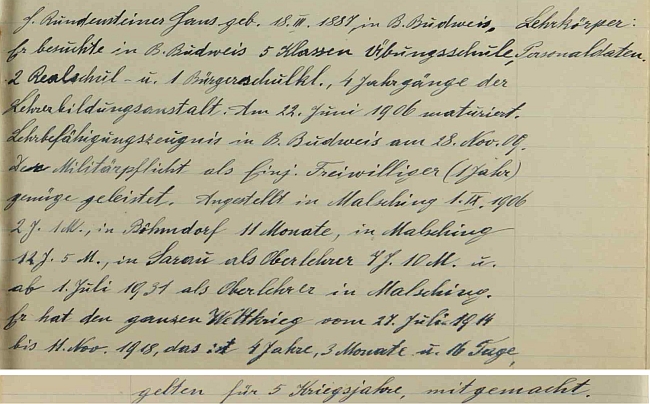 f. Rundensteiner Hans, geb. 18. III. 1887, in B. Budweis. Lehrkörper:
Er besuchte in B. Budweis 5 Klassen Übungsschule, Personaldaten.
2 Realschul- u. 1 Bürgerschulkl., 4 Jahrgänge der
Lehrerbildungsanstalt. Am 22. Juni 1906 maturiert.
Lehrbefähigungszeugnis in B. Budweis am 28. Nov. 09.
Der Militärpflicht als Einj. Freiwilliger (1 Jahr)
genüge geleistet. Angestellt in Malsching 1. IX. 1906
2 J. 1 M., in Böhmdorf 11 Monate, in Malsching
12 J. 5 M., in Sarau als Oberlehrer 7 J. 10 M. u.
ab 1. Juli 1931 als Oberlehrer in Malsching.
Er hat den ganzen Weltkrieg vom 27. Juli 1914
bis 11. Nov. 1918, das ist 4 Jahre, 3 Monate u. 16 Tage,
gelten für 5 Kriegsjahre, mitgemacht.